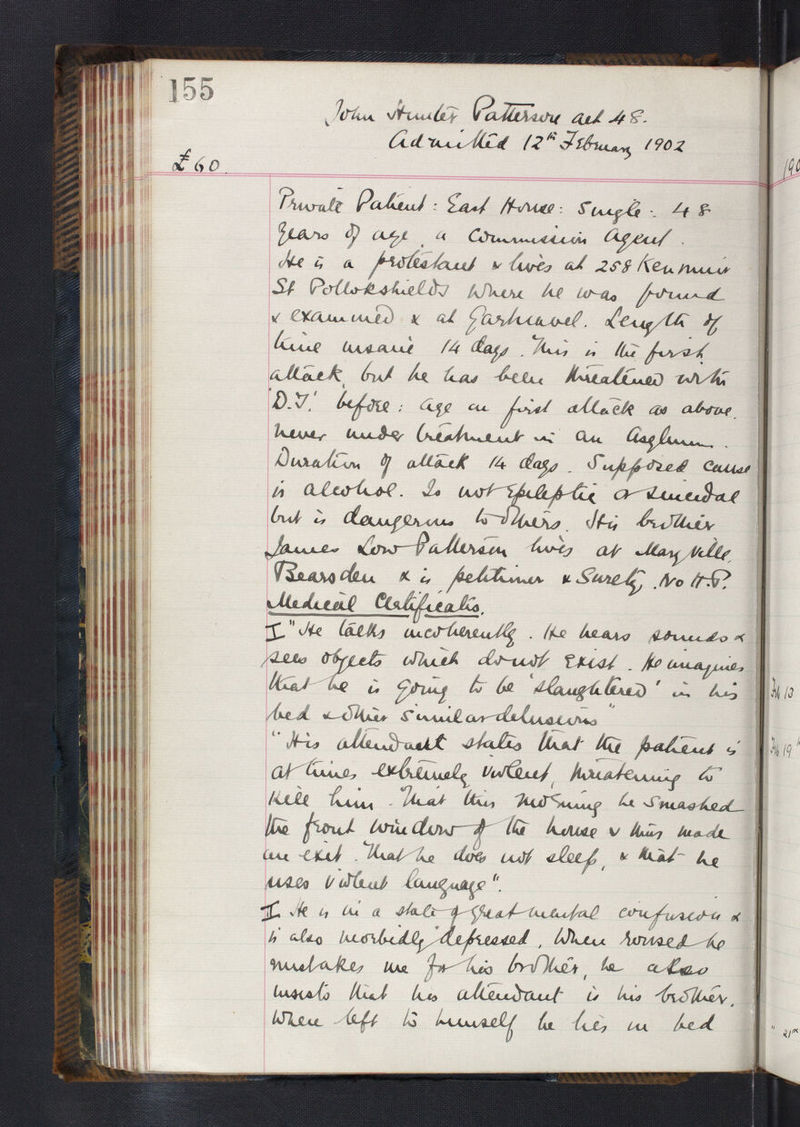 155
John Hunter Patterson aet 48.
Admitted 12th February 1902
£60.
Private Patient: East House: Single: 48
years of age, a Commission Agent.
He is a protestant & lives at 258 Kenmuir
St Pollokshields where he was found
& examined & at Gartnavel. Length of
time insane 14 days. This is the first
attack, but he has been threatened with
'D.T.' before: age on first attack as above.
never under treatment in an Asylum.
Duration of attack 14 days. Supposed cause
is alcohol. Is not Epileptic or Suicidal
but is dangerous to others. His brother
James Low Patterson lives at Maryville,
Bearsden & is petitioner & Surety. No H.P.
Medical Certificates.
I "He talks incoherently. He hears sounds &
sees objects which do not exist. He imagines
that he is going to be 'slaughtered' in his
bed & other similar delusions"
"His attendant states that the patient is
at times extremely violent, threatening to
kill him. That this morning he smashed
the front window of the house & thus made
an exit. That he does not sleep, & that he
uses violent language".
I He is in a state of great mental confusion &
is also morbidly depressed. When roused he
mistakes me for his brother, he also
insists that his attendant is his brother.
When left to himself he lies in bed
190
Feb 13
Feb 19th
" 21st